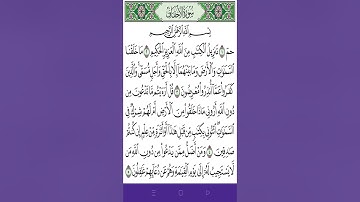 سُورَةُ الأَحۡقَافِ
بِسۡمِ ٱللَّهِ ٱلرَّحۡمَٰنِ ٱلرَّحِيمِ
حمٓ ١ تَنزِيلُ ٱلۡكِتَٰبِ مِنَ ٱللَّهِ ٱلۡعَزِيزِ ٱلۡحَكِيمِ ٢ مَا خَلَقۡنَا
ٱلسَّمَٰوَٰتِ وَٱلۡأَرۡضَ وَمَا بَيۡنَهُمَآ إِلَّا بِٱلۡحَقِّ وَأَجَلٖ مُّسَمّٗىۚ وَٱلَّذِينَ
كَفَرُواْ عَمَّآ أُنذِرُواْ مُعۡرِضُونَ ٣ قُلۡ أَرَءَيۡتُم مَّا تَدۡعُونَ مِن
دُونِ ٱللَّهِ أَرُونِي مَاذَا خَلَقُواْ مِنَ ٱلۡأَرۡضِ أَمۡ لَهُمۡ شِرۡكٞ فِي
ٱلسَّمَٰوَٰتِۖ ٱئۡتُونِي بِكِتَٰبٖ مِّن قَبۡلِ هَٰذَآ أَوۡ أَثَٰرَةٖ مِّنۡ عِلۡمٍ إِن كُنتُمۡ
صَٰدِقِينَ ٤ وَمَنۡ أَضَلُّ مِمَّن يَدۡعُواْ مِن دُونِ ٱللَّهِ مَن
لَّا يَسۡتَجِيبُ لَهُۥٓ إِلَىٰ يَوۡمِ ٱلۡقِيَٰمَةِ وَهُمۡ عَن دُعَآئِهِمۡ غَٰفِلُونَ ٥